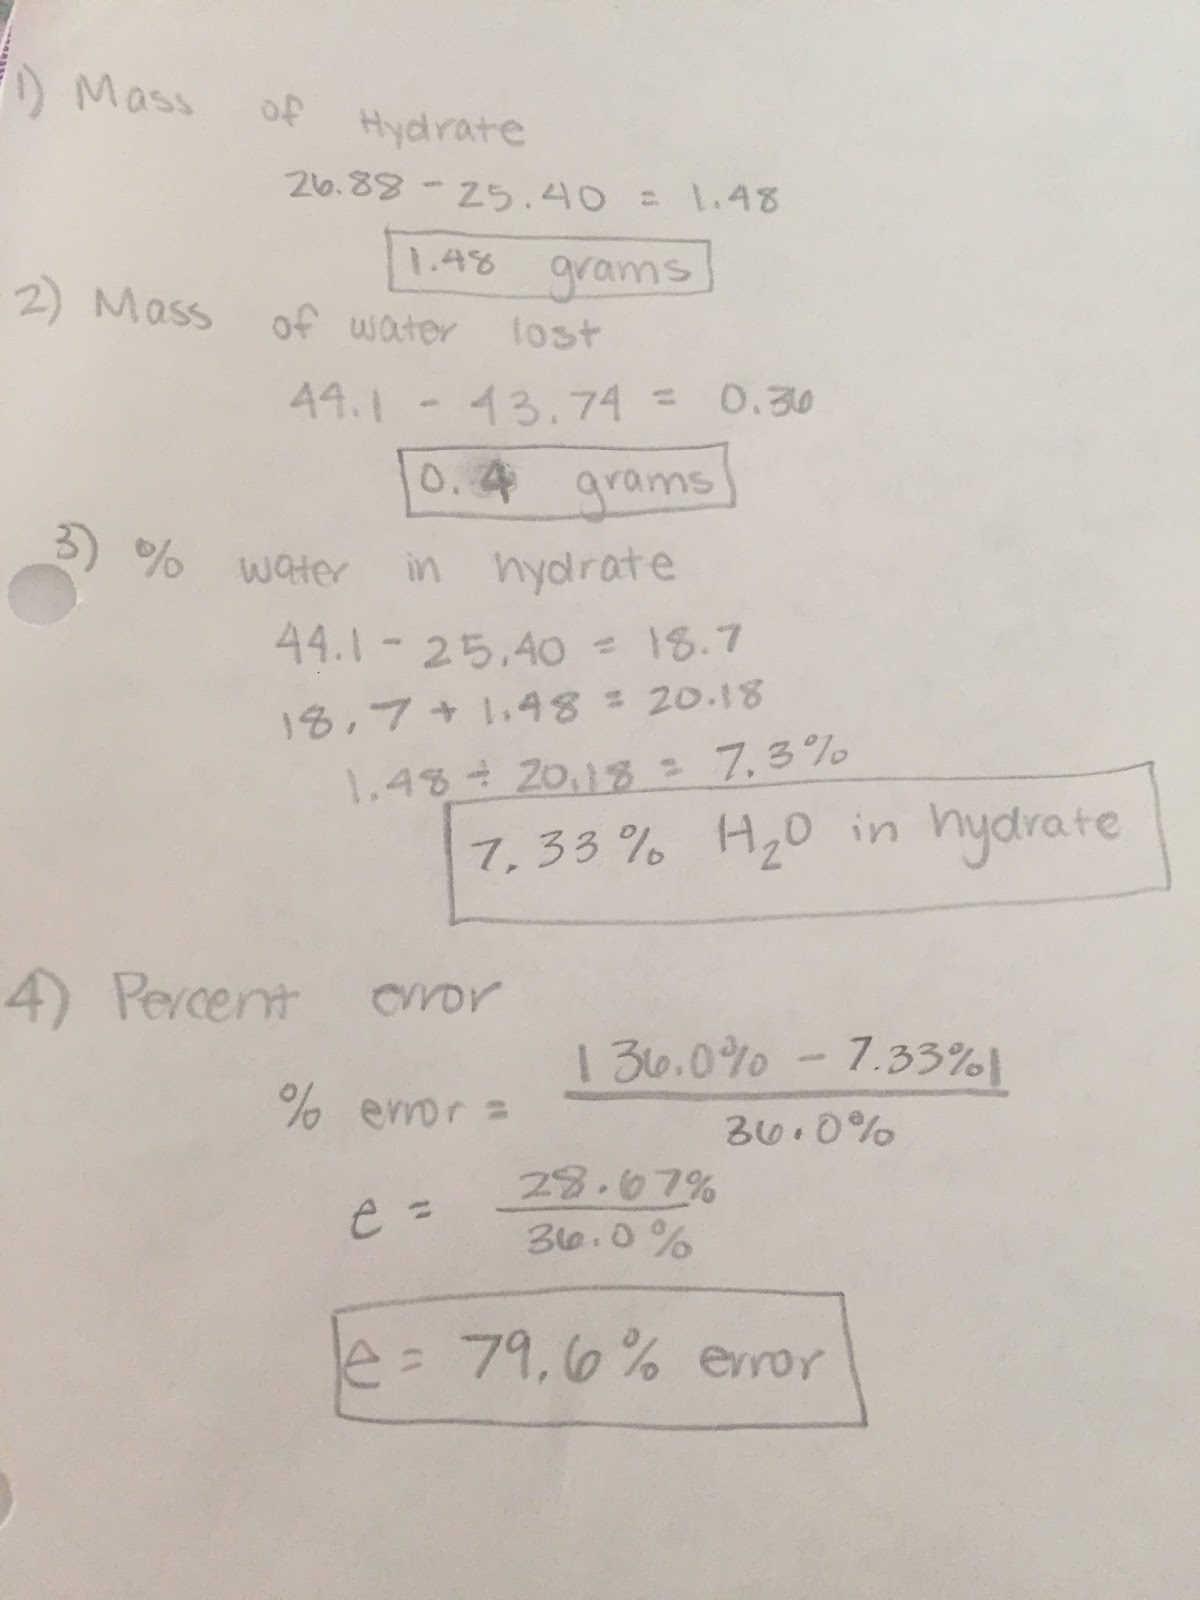 1) Mass of Hydrate
26.88 - 25.40 = 1.48
1.48 grams
2) Mass of water lost
44.1 - 43.74 = 0.36
0.4 grams
3) % water in hydrate
44.1 - 25.40 = 18.7
18.7 + 1.48 = 20.18
1.48 ÷ 20.18 = 7.3%
7.33% H₂O in hydrate
4) Percent error
|36.0% - 7.33%|
% error =
36.0%
28.67%
e =
36.0%
e = 79.6% error